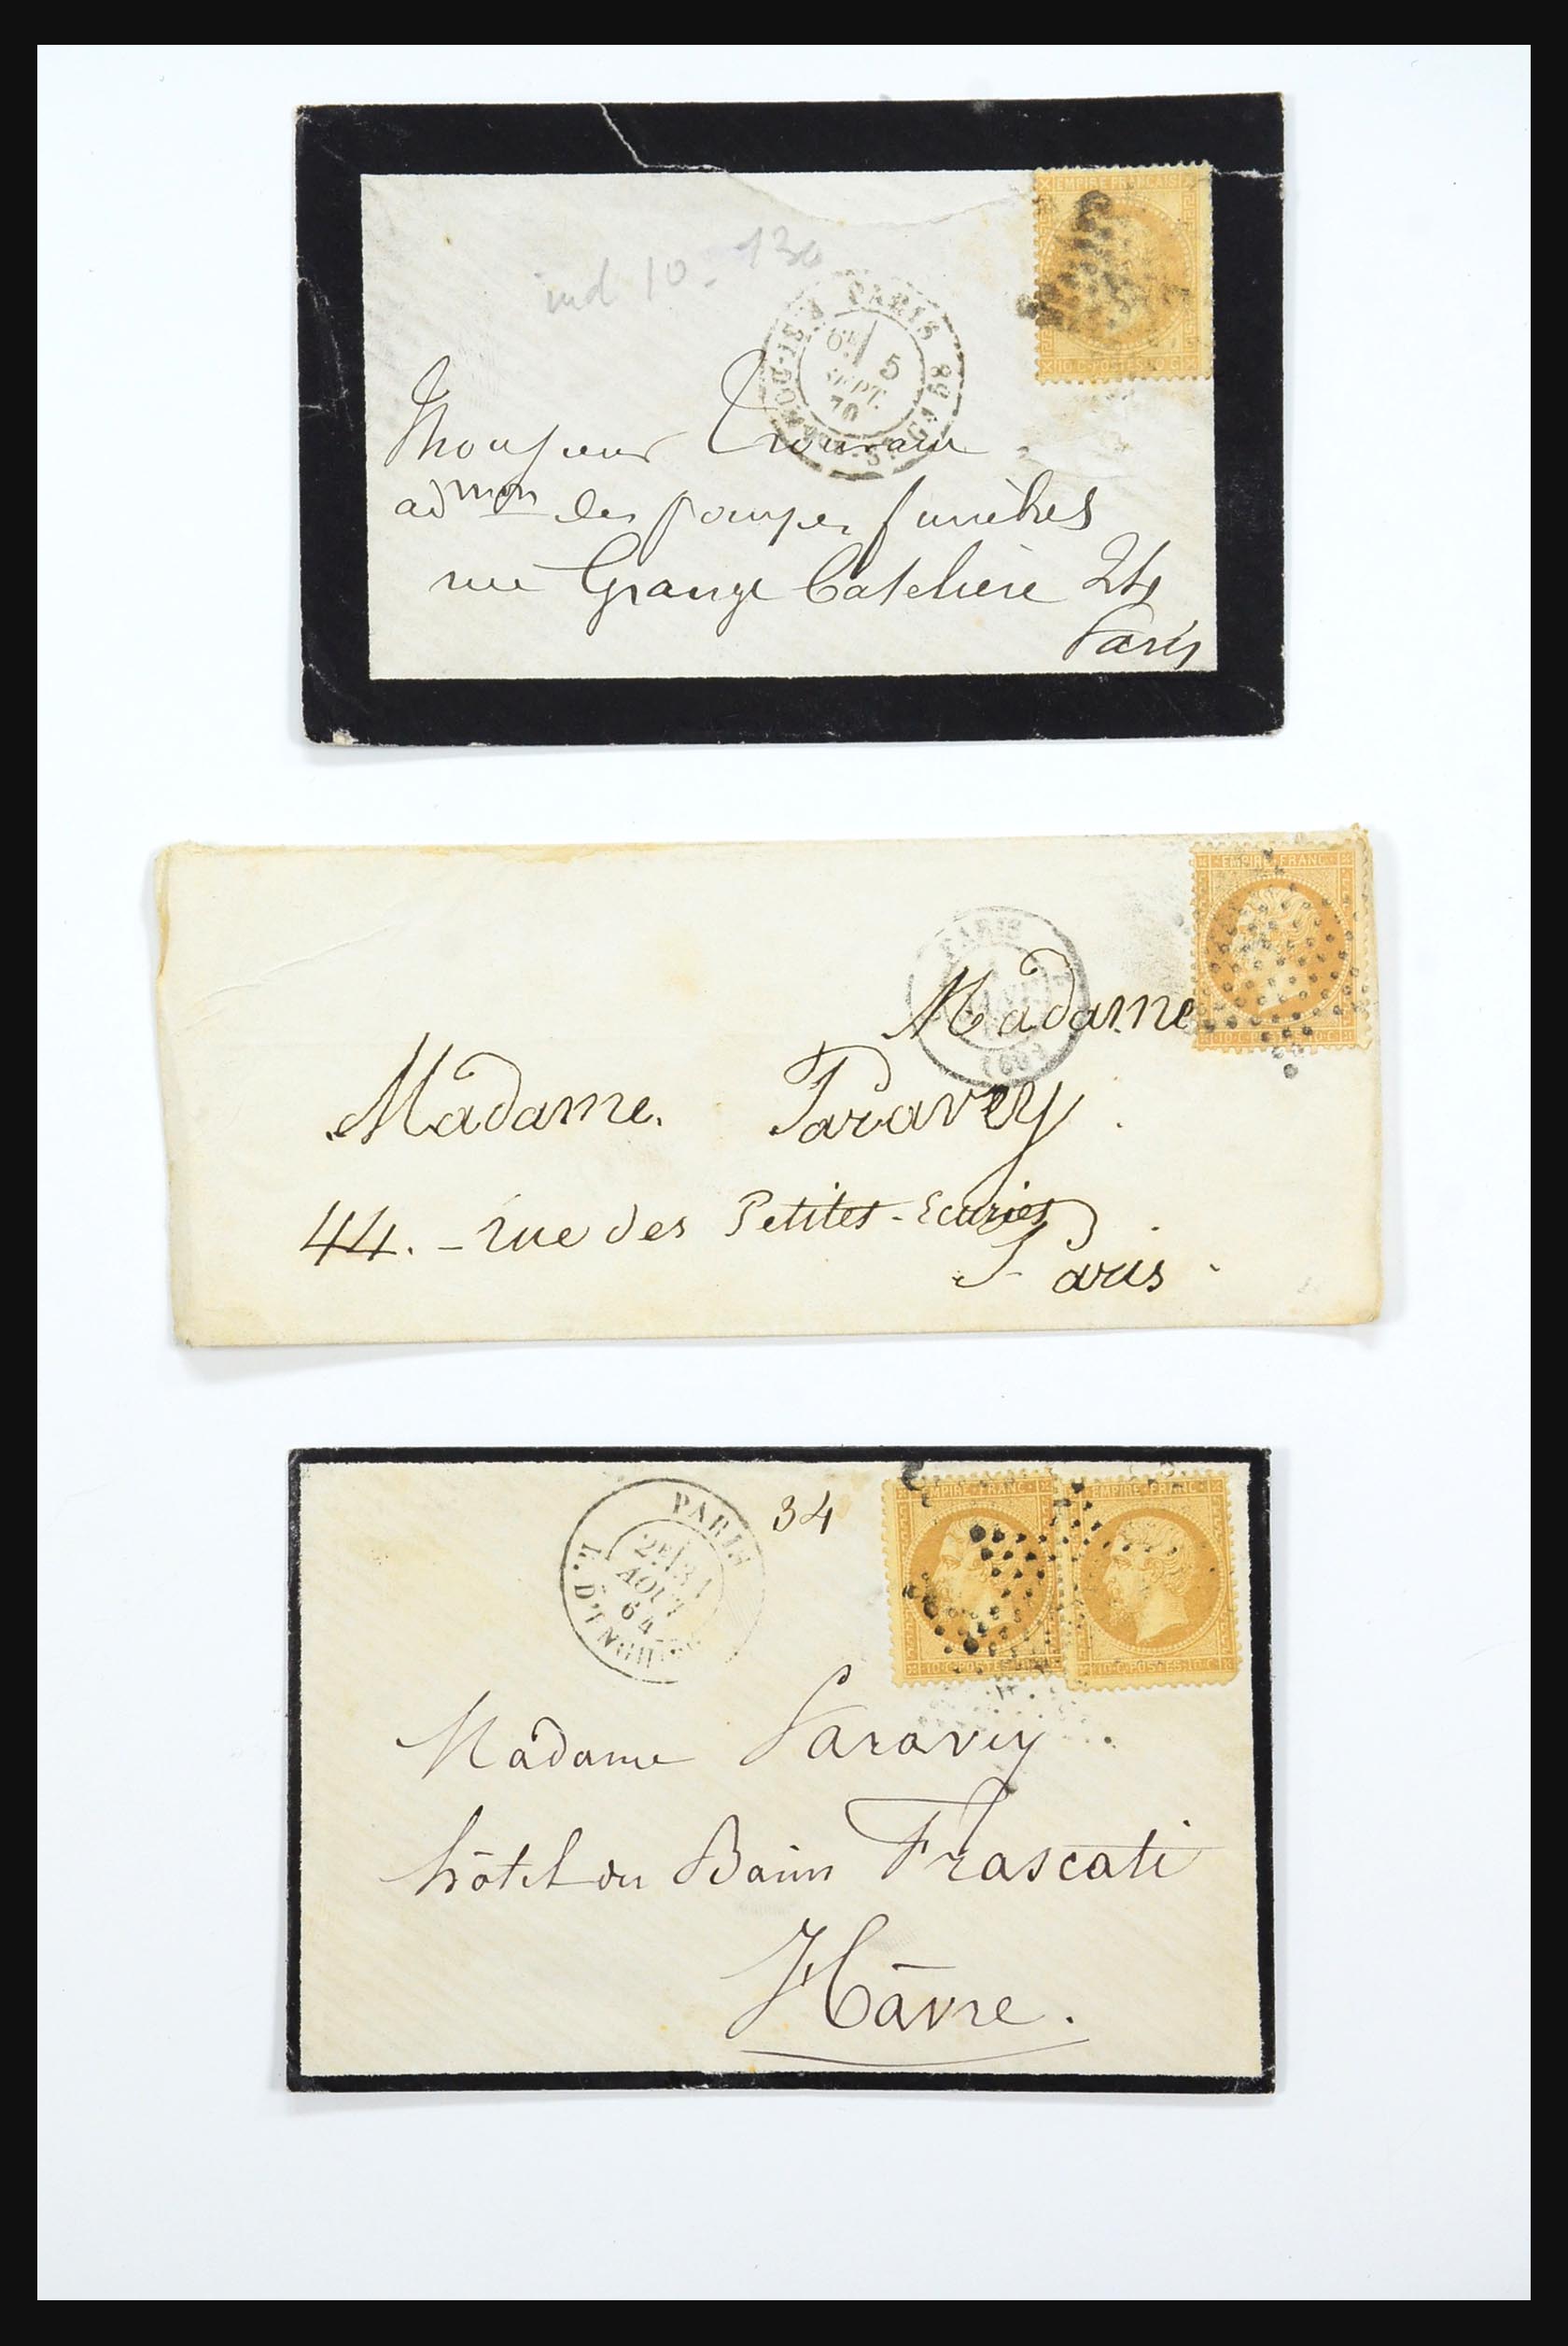 EMPIRE FRANÇAIS
10 C. POSTES 10 C.
ind 10 - 130
PARIS
6E 5
SEPT.
70
Monsieur
admon des pompes funèbres
rue Grange Batelière 24
Paris
EMPIRE FRANC
10 C. POSTES 10 C.
PARIS
(60)
Madame
Madame. Paravey.
44. - rue des Petites-Ecuries
Paris.
EMPIRE FRANC
10 C. POSTES 10 C.
EMPIRE FRANC
10 C. POSTES 10 C.
34
PARIS
2E 31
AOUT
64
R. D'ENGHIEN
Madame Paravey
hôtel du Bains Frascati
Hâvre.